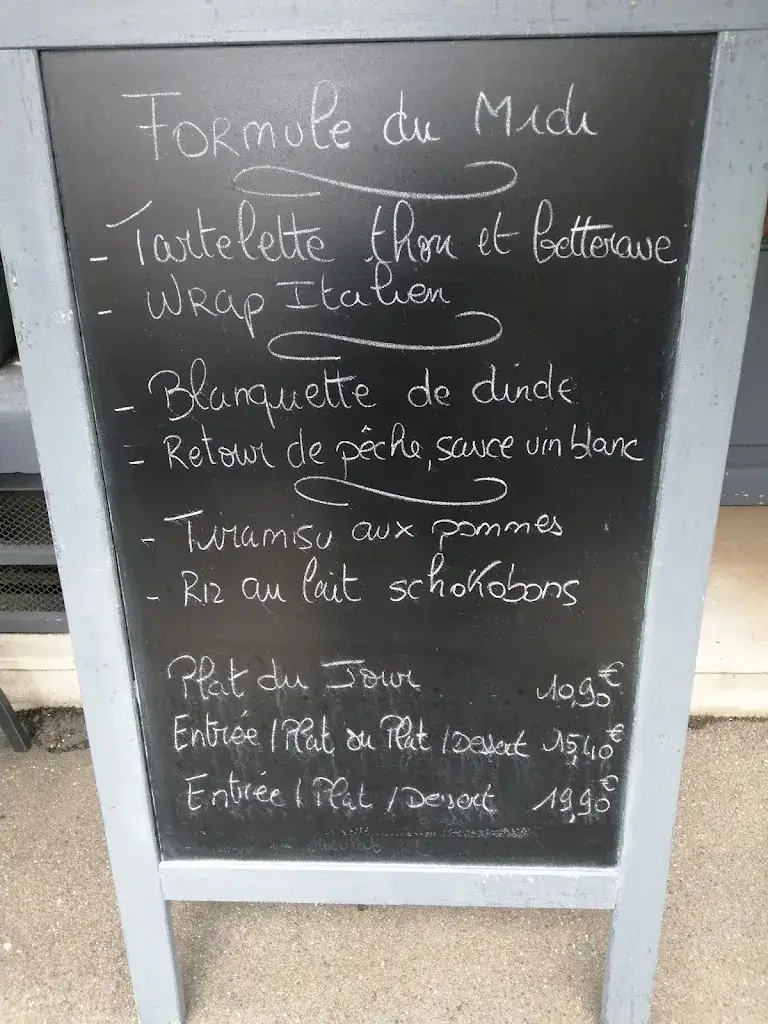 Formule du Midi
- Tartelette thon et betterave
- Wrap Italien
- Blanquette de dinde
- Retour de pêche, sauce vin blanc
- Tiramisu aux pommes
- Riz au lait schokobons
Plat du Jour 10,90€
Entrée / Plat ou Plat / Dessert 15,40€
Entrée / Plat / Dessert 19,90€
chocolat